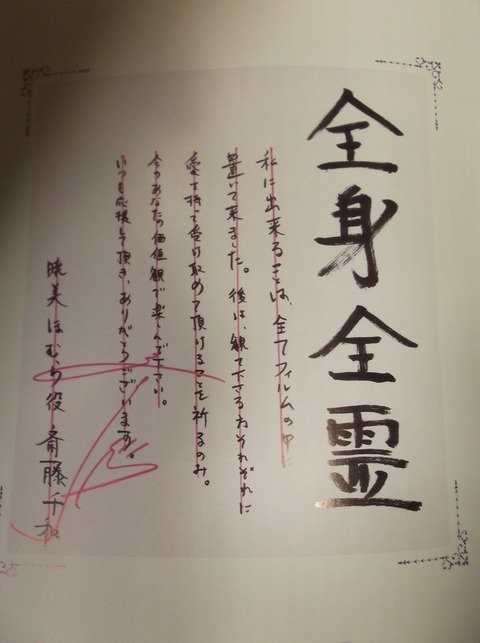 全身全霊
私に出来ることは、全てフィルムの中に
置いて来ました。後は、観て下さる方それぞれに
愛を持って受け取めて頂けることを祈るのみ。
今のあなたの価値観で楽しんで下さい。
いつも応援して頂き、ありがとうございます。
暁美ほむら役 斎藤千和